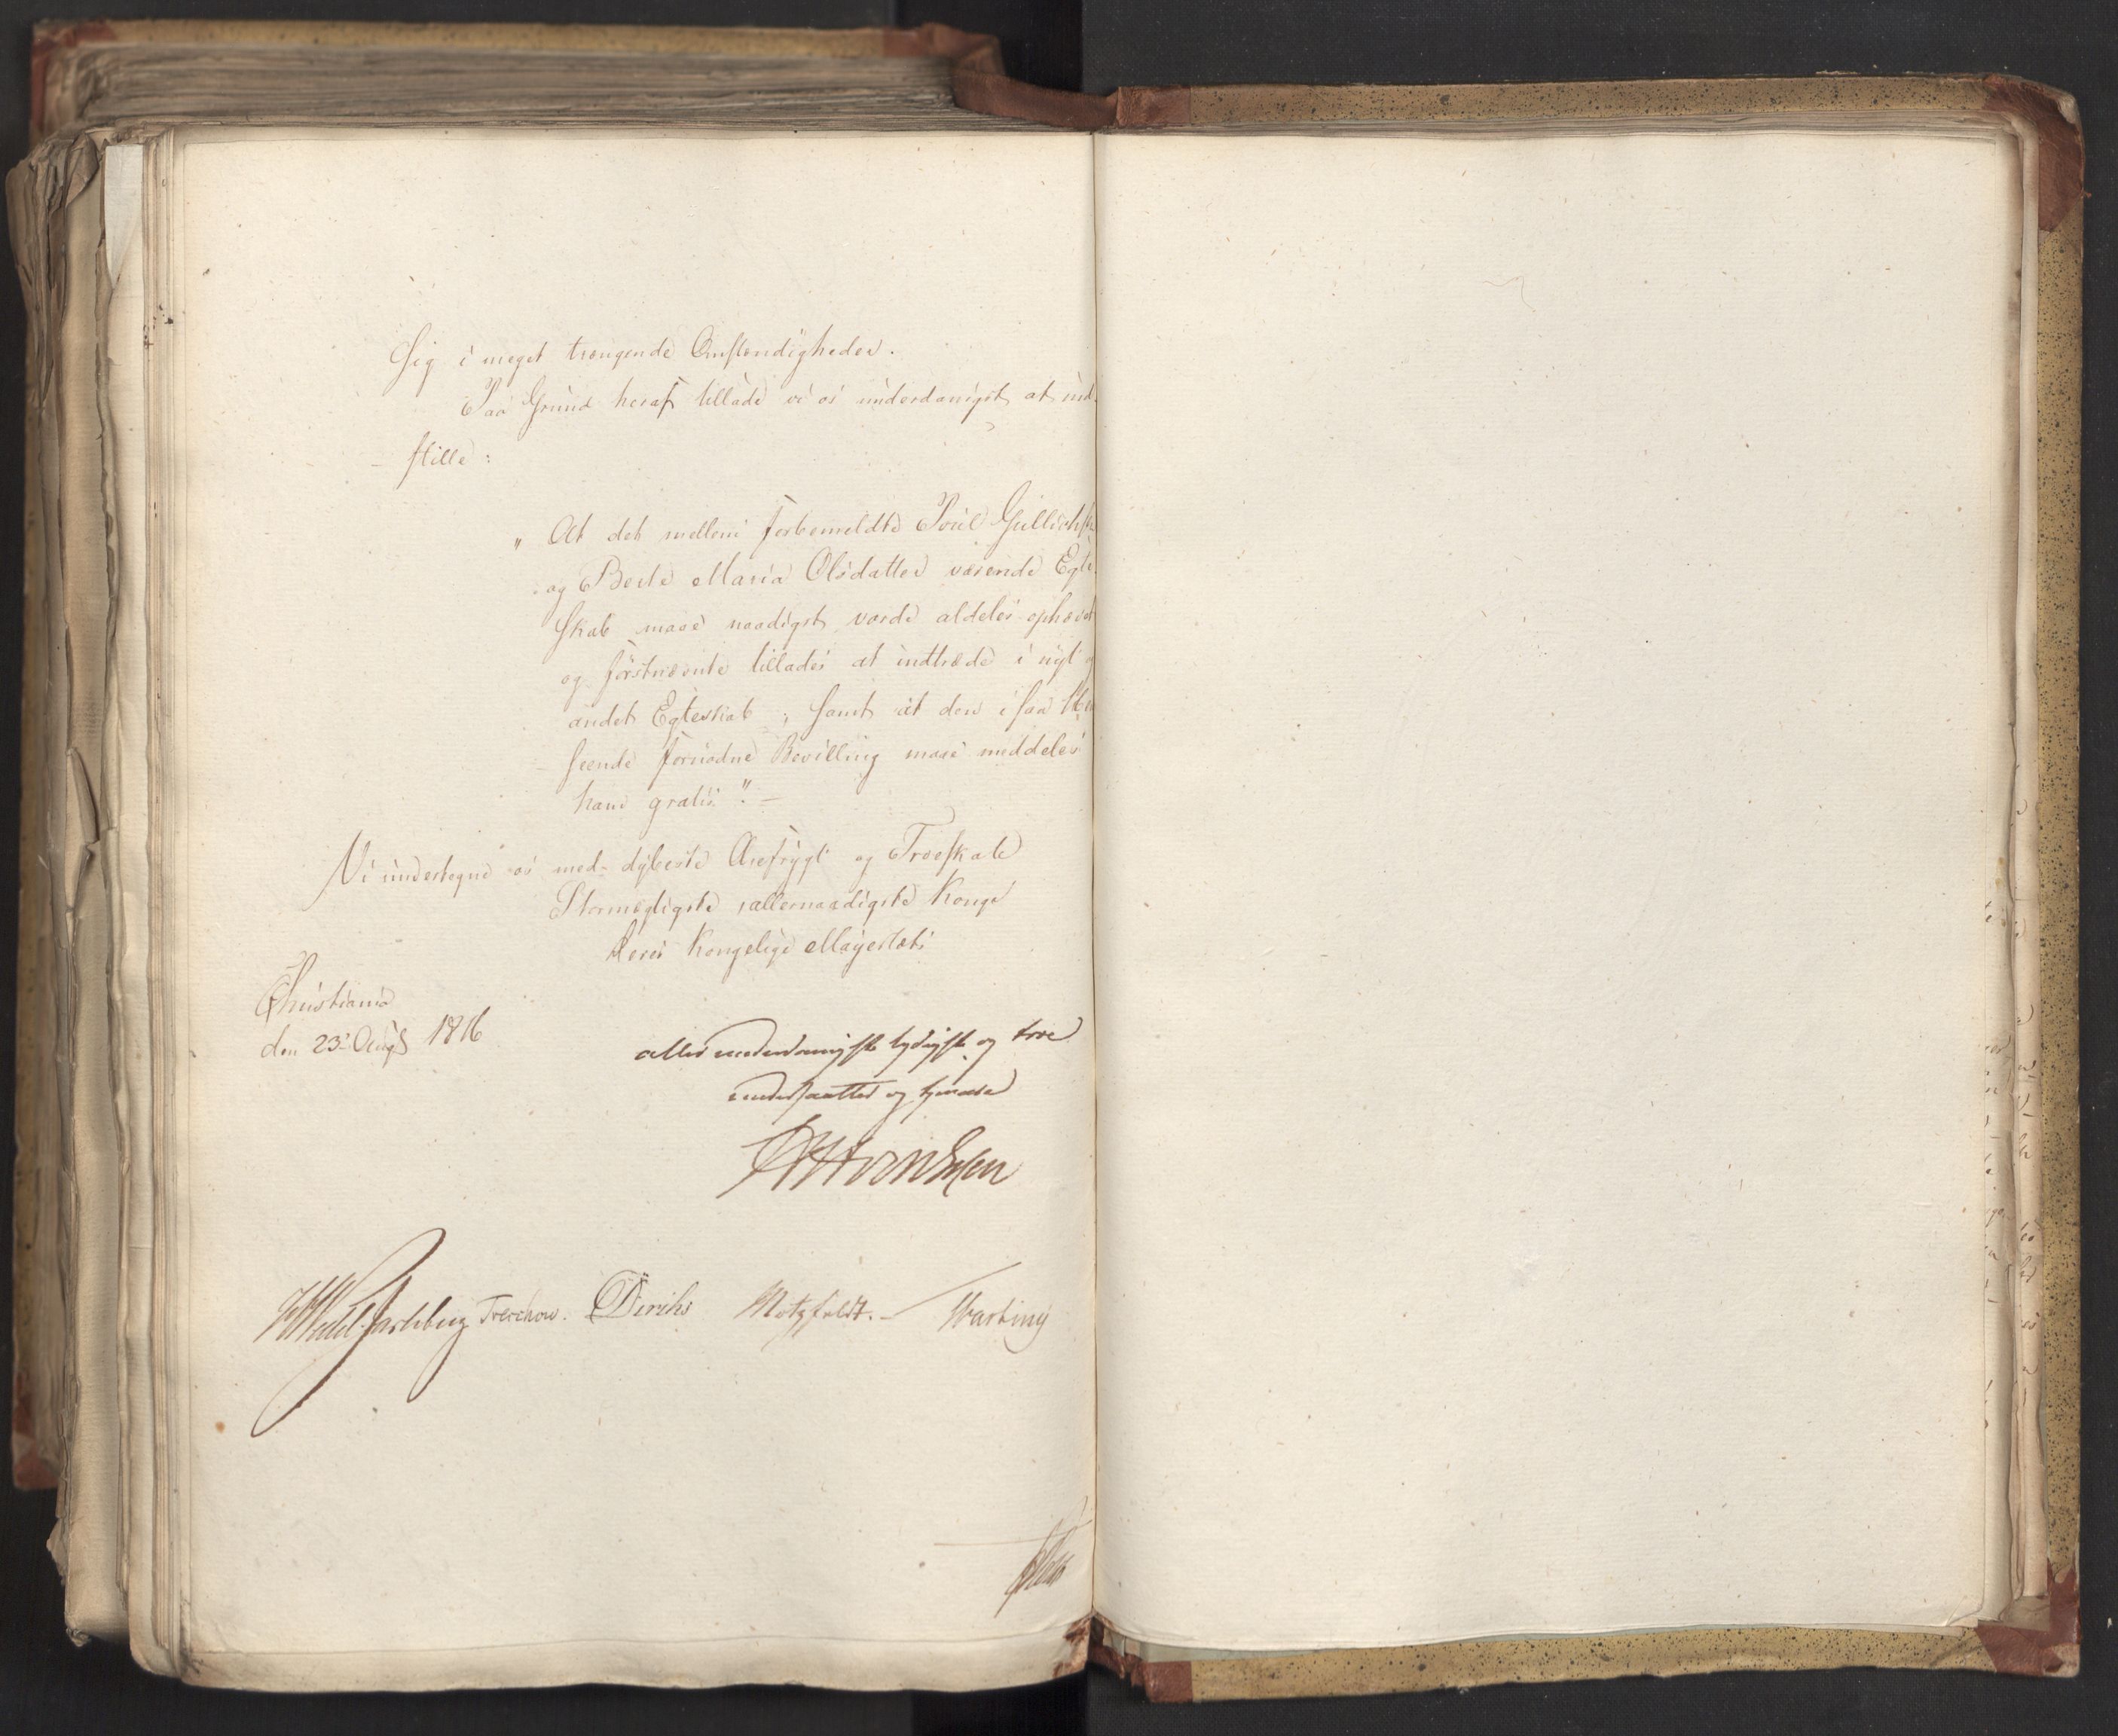 Sig i meget trængende Omstændigheder.
Paa Grund heraf tillade vi os underdanigst at ind-
stille:
" At det mellem forbemeldte Poul Gullichs
og Berte Maria Olsdatter værende Egte
skab maae naadigst vorde aldeles ophævet
og förstnævnte tillades at indtræde i nyt og
andet Egteskab; samt at den i saa Hen
seende fornödne Bevilling maae meddeles
ham gratis". -
Vi undertegne os med dybeste Ærefrygt og Troeskab
Stormægtigste, allernaadigste Konge
Deres Kongelige Majestæts
Christiania
den 23de Augt 1816
allerunderdanigste lydigste og troe
undersaatter og tjenere
Wedel Jarlsberg Treschow. Diriks Motzfeldt. - Vasting